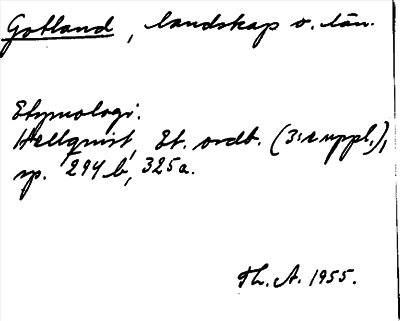 Gotland, landskap o. län.
Etymologi:
Hellquist, Et. ordb. (3:e uppl.),
sp. 294 b, 325a.
Th. A. 1955.